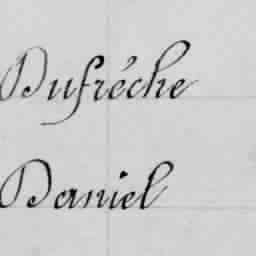 Dufréche
Daniel